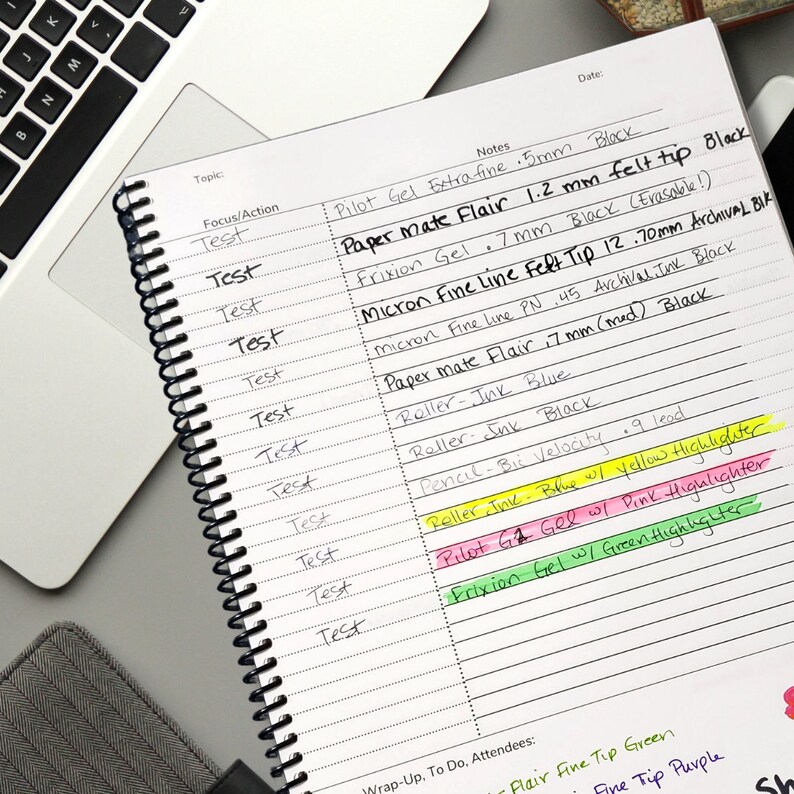 K
M
N
B
Date:
Topic:
Notes
Focus/Action
Test Pilot Gel Extrafine .5mm Black
Test Paper mate Flair 1.2 mm felt tip Black
Test Frixion Gel .7mm Black (Erasable!)
Test Micron Fine Line Felt Tip 12 .70mm Archival Blk
Test micron Fine Line PN .45 Archival Ink Black
Test Paper mate Flair .7mm (med) Black
Test Roller-Ink Blue
Test Roller-Ink Black
Test Pencil-Bic Velocity .9 lead
Test Roller Ink-Blue w/ Yellow Highlighter
Test Pilot G2 Gel w/ Pink Highlighter
Test Frixion Gel w/ Green Highlighter
Wrap-Up, To Do, Attendees:
- Flair Fine Tip Green
Fine Tip Purple
Sh